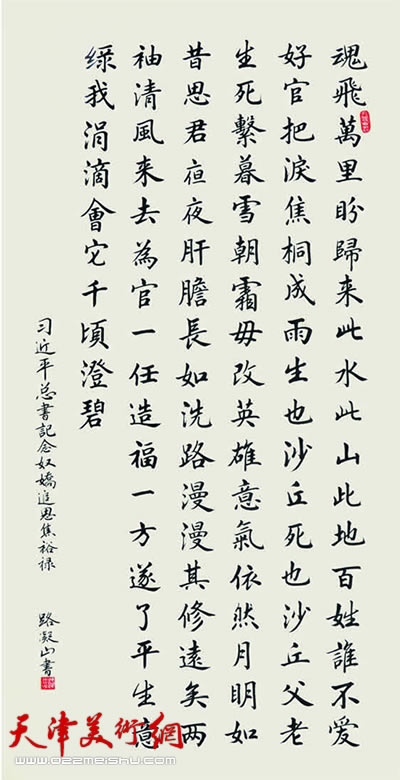 魂飛萬里盼歸来此水此山此地百姓誰不爱
好官把淚焦桐成雨生也沙丘死也沙丘父老
生死繫暮雪朝霜毋改英雄意氣依然月明如
昔思君亱夜肝膽長如洗路漫漫其修遠矣两
袖清風来去為官一任造福一方遂了平生意
绿我涓滴會它千頃澄碧
习近平总書記念奴嬌追思焦裕禄 路凝山書
天津美術網
www.022meishu.com